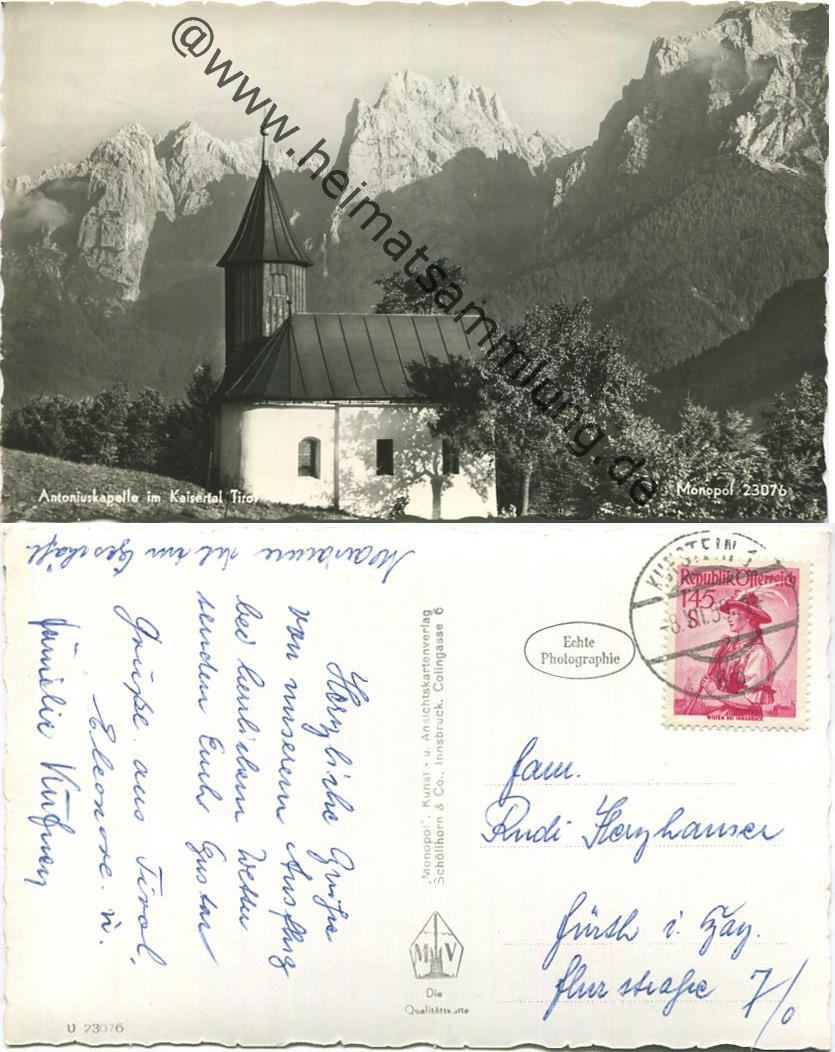 @www.heimatsammlung.de
Antoniuskapelle im Kaisertal Tirol
Monopol 23076
Marianne ist im Geschäft
Herzliche Grüße
von unserem Ausflug
bei herrlichem Wetter
senden Euch Gustav
Eleonore u.
Familie
Grüße aus Tirol,
"Monopol", Kunst- u. Ansichtskartenverlag
Schöllhorn & Co., Innsbruck, Colingasse 6
M V
Die
Qualitätskarte
U 23076
Echte
Photographie
KUFSTEIN
Republik Österreich
1.45
WILTEN BEI INNSBRUCK
Fam.
Rudi Herzhauser
Fürth i. Bay.
Flurstraße 7/0